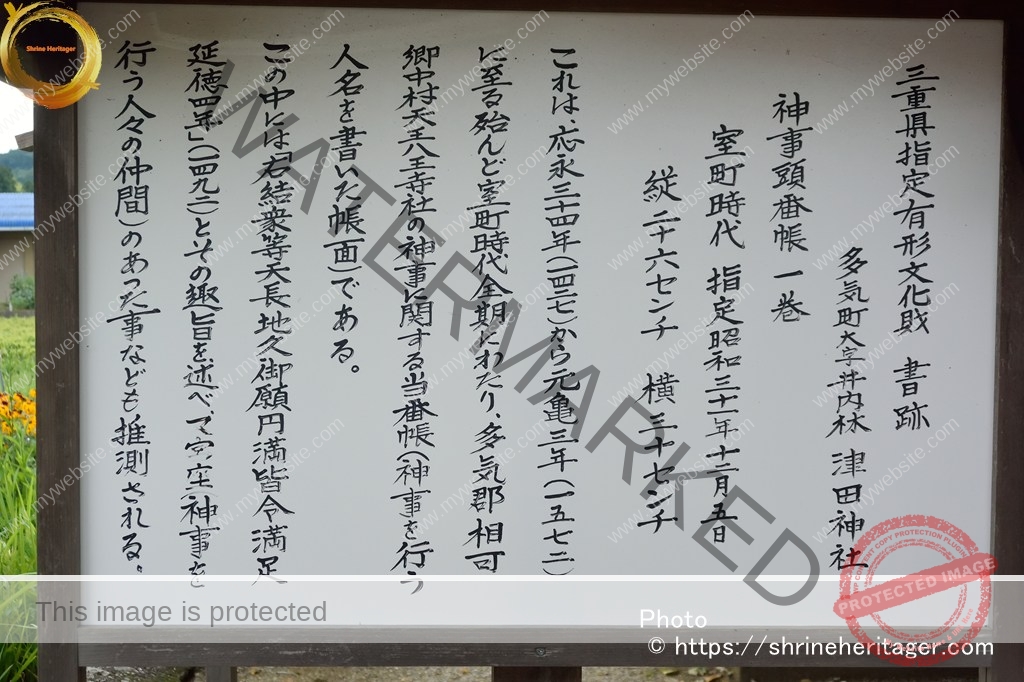 三重県指定有形文化財　書跡
多気町大字井内林　津田神社
神事頭番帳一巻
室町時代　指定昭和三十一年十二月五日
縦二十六センチ　横三十センチ
これは、応永三十四年(一四二七)から元亀三年(一五七二)
に至る殆んど室町時代全期にわたり、多気郡相可
郷中村天王八王寺社の神事に関する当番帳(神事を行う
人名を書いた帳面)である。
この中には右結衆等天長地久御願円満皆令満足
延徳四年」(一四九二)とその趣旨を述べて宮座(神事を
行う人々の仲間)のあった事なども推測される。
Shrine Heritager
WATERMARKED
www.mywebsite.com
COPY PROTECTION PLUGIN
PROTECTED IMAGE
This image is protected
Photo
© https://shrineheritager.com/